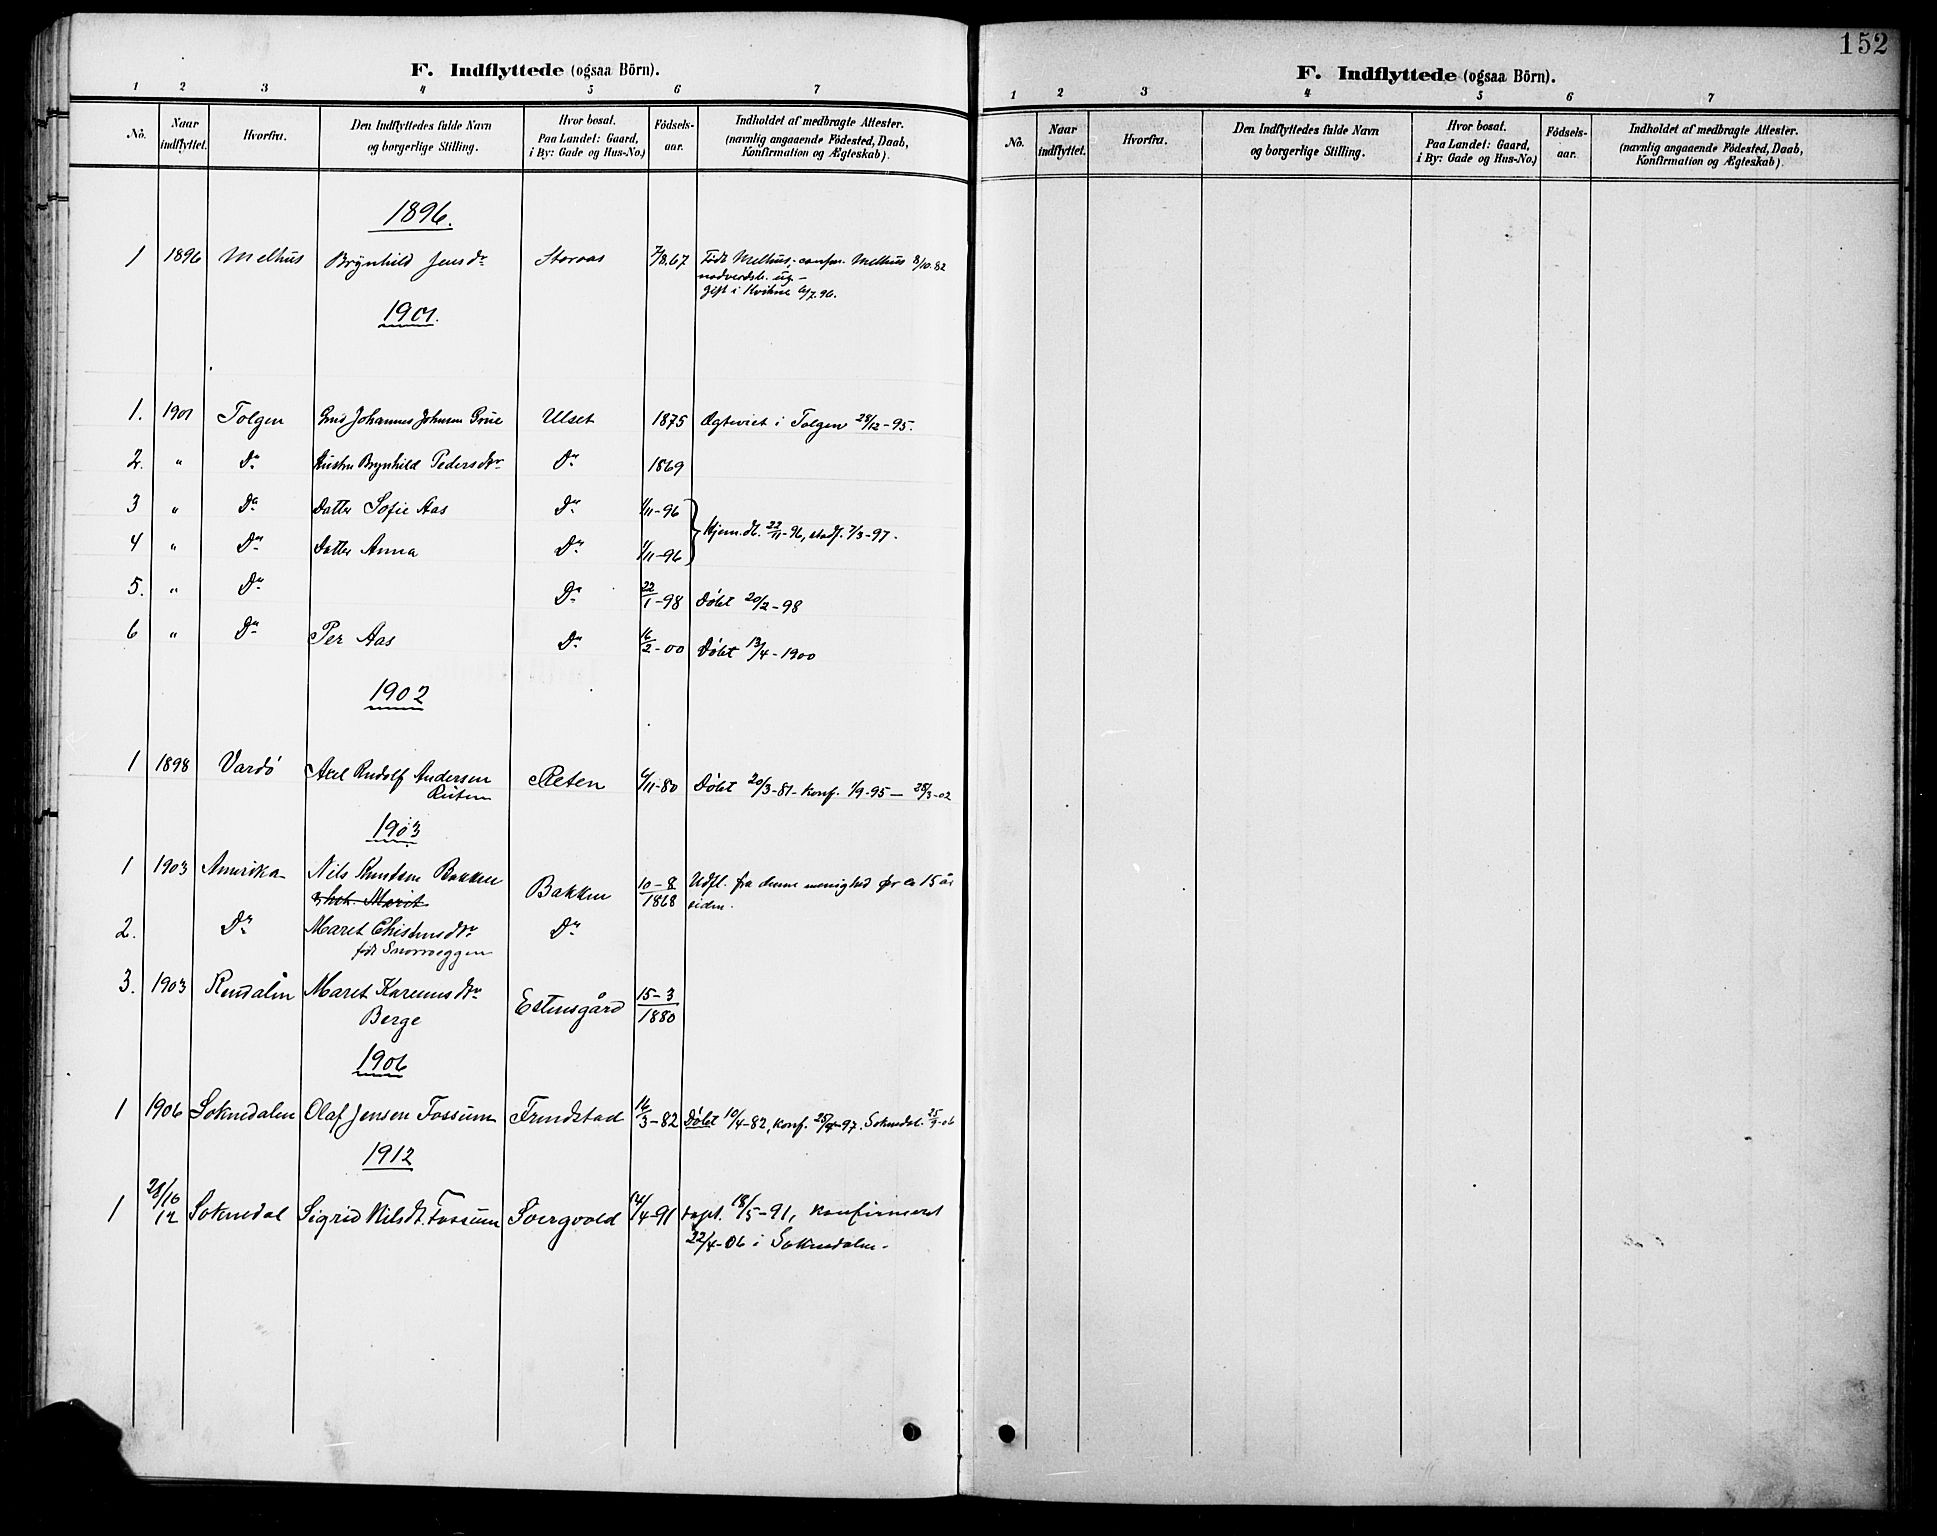 F. Indflyttede (ogsaa Börn).
1 2 3 4 5 6 7
No. Naar indflyttet. Hvorfra. Den Indflyttedes fulde Navn og borgerlige Stilling. Hvor bosat. Paa Landet: Gaard, i By: Gade og Hus-No.) Födsels-aar. Indholdet af medbragte Attester. (navnlig angaaende Födested, Daab, Konfirmation og Ægteskab).
1896.
1 1896 Melhus Brynhild Jensdr Storaas 7/8.67 Født Melhus, confm. Melhus 8/10.82
gift i Kvikne 6/7.96.
1901.
1. 1901 Tolgen Johannes Johnsen Grue Ulset 1875 Ægteviet i Tolgen 28/12-95.
2. " Do Hustru Brynhild Pedersdtr Do 1869
3 " Do Datter Sofie Aas Do 1/11-96
Hjem.db. 22/11-96, stadf. 7/3-97.
4 " Do Datter Anna Do 1/11-96
5. " Do Do 22/1-98 Døbt 20/2-98
6 " Do Per Aas Do 16/2-00 Døbt 13/4-1900
1902
1 1898 Vardö Axel Rudolf Andersen Reten 6/11-80 Døbt 20/3-81- konf. 1/9-95 — 28/3-02
1903
1 1903 Amerika Nils Knudsen Bakken Bakken 10-8 1868 Udfl. fra denne menighed for ca 15 år
siden.
& hst. Marit
2. Do Maret Do
født Snorroeggen
3. 1903 Rendalen Maret Estensgård 15-3 1880
Berge
1906
1 1906 Soknedalen Olaf Jensen Fossum Frendstad 16/3-82 Døbt 10/4-82, konf. 97. Soknedal. 06
1912
1 28/10 12 Soknedal Sigrid Nilsdt. Fossum 4-91 Døpt. 18/5-91, konfirmeret
22/4-06 i Soknedalen.
152
F. Indflyttede (ogsaa Börn).
1 2 3 4 5 6 7
No. Naar indflyttet. Hvorfra. Den Indflyttedes fulde Navn og borgerlige Stilling. Hvor bosat. Paa Landet: Gaard, i By: Gade og Hus-No.) Födsels-aar. Indholdet af medbragte Attester. (navnlig angaaende Födested, Daab, Konfirmation og Ægteskab).